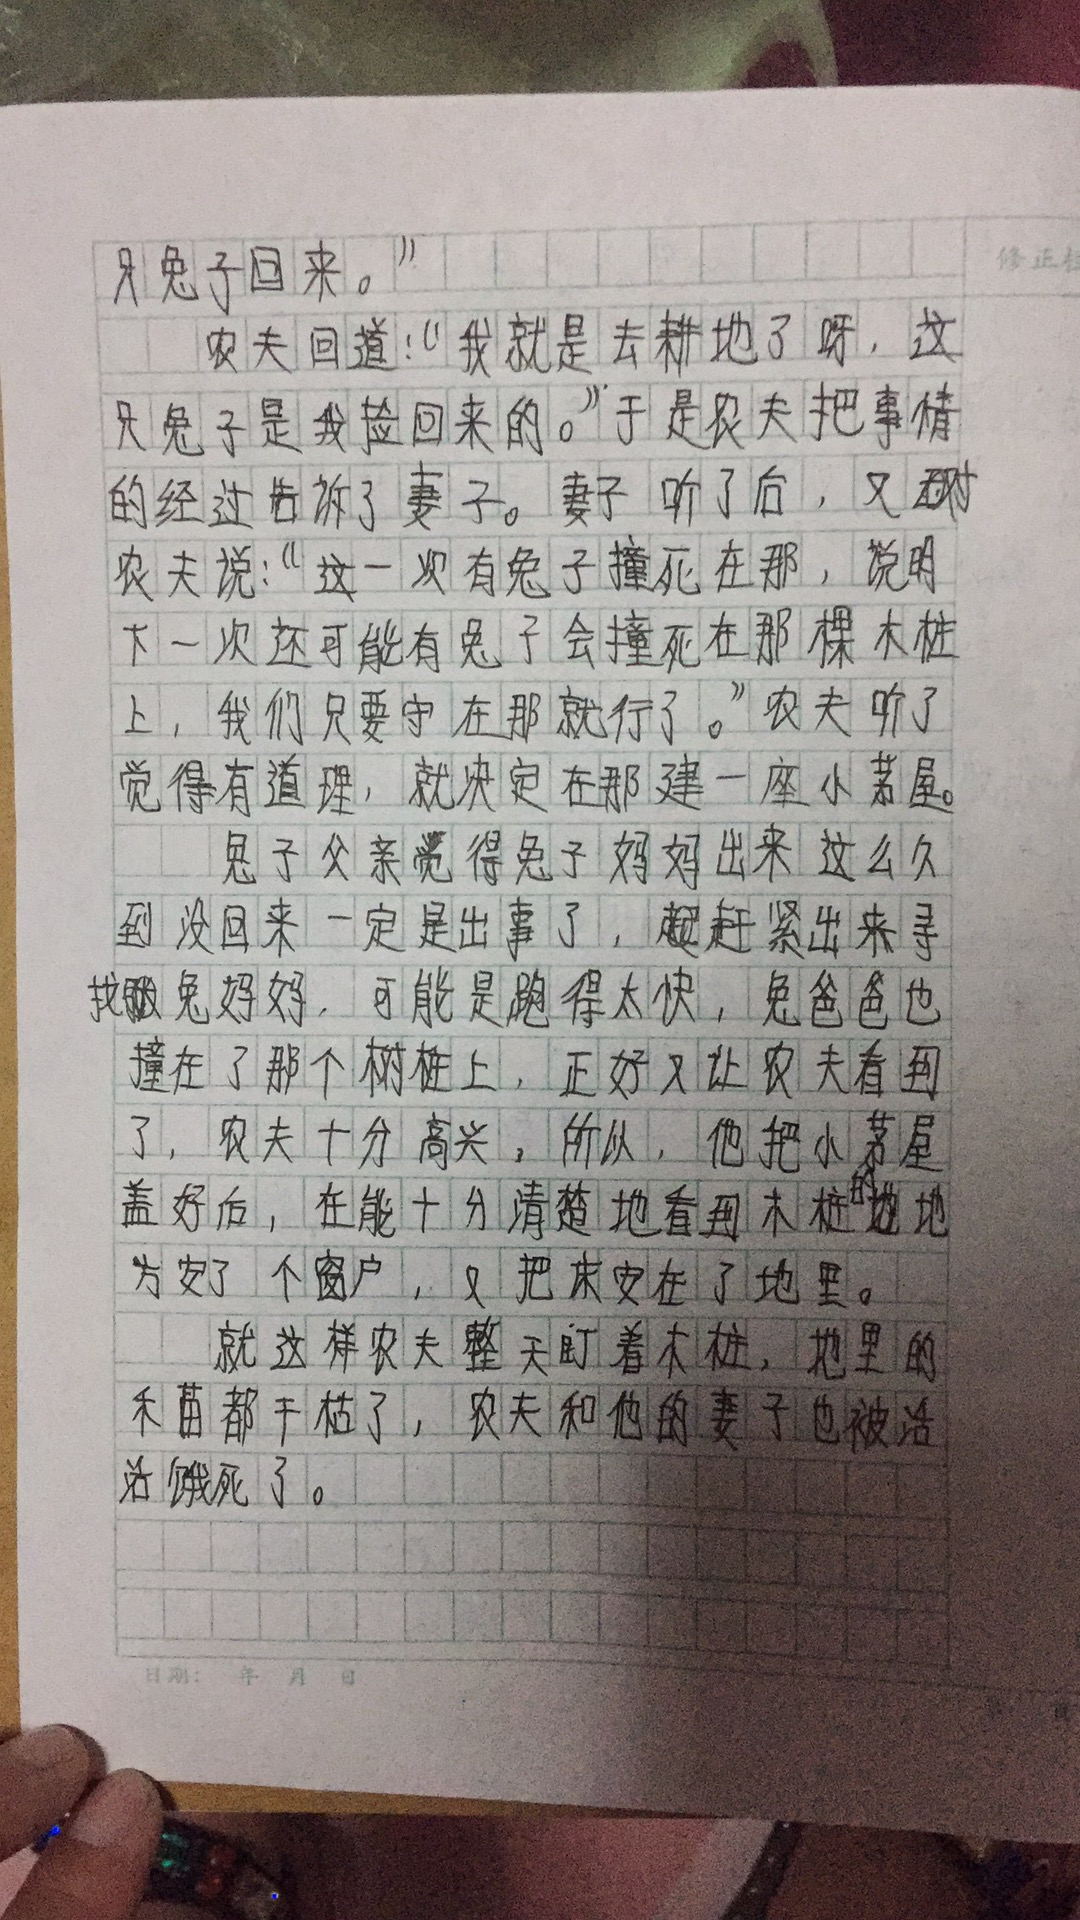 只兔子回来。”
农夫回道:“我就是去耕地了呀,这
只兔子是我捡回来的。”于是农夫把事情
的经过告诉了妻子。妻子听了后,又对
农夫说:“这一次有兔子撞死在那,说明
下一次还可能有兔子会撞死在那棵木桩
上,我们只要守在那就行了。”农夫听了
觉得有道理,就决定在那建一座小茅屋。
兔子父亲觉得兔子妈妈出来这么久
到没回来一定是出事了,赶紧出来寻
找兔妈妈,可能是跑得太快,兔爸爸也
撞在了那个树桩上,正好又让农夫看到
了,农夫十分高兴,所以,他把小茅屋
盖好后,在能十分清楚地看到木桩的地
方安了个窗户,又把床安在了地里。
就这样农夫整天盯着木桩,地里的
禾苗都干枯了,农夫和他的妻子也被活
活饿死了。
日期: 年 月 日